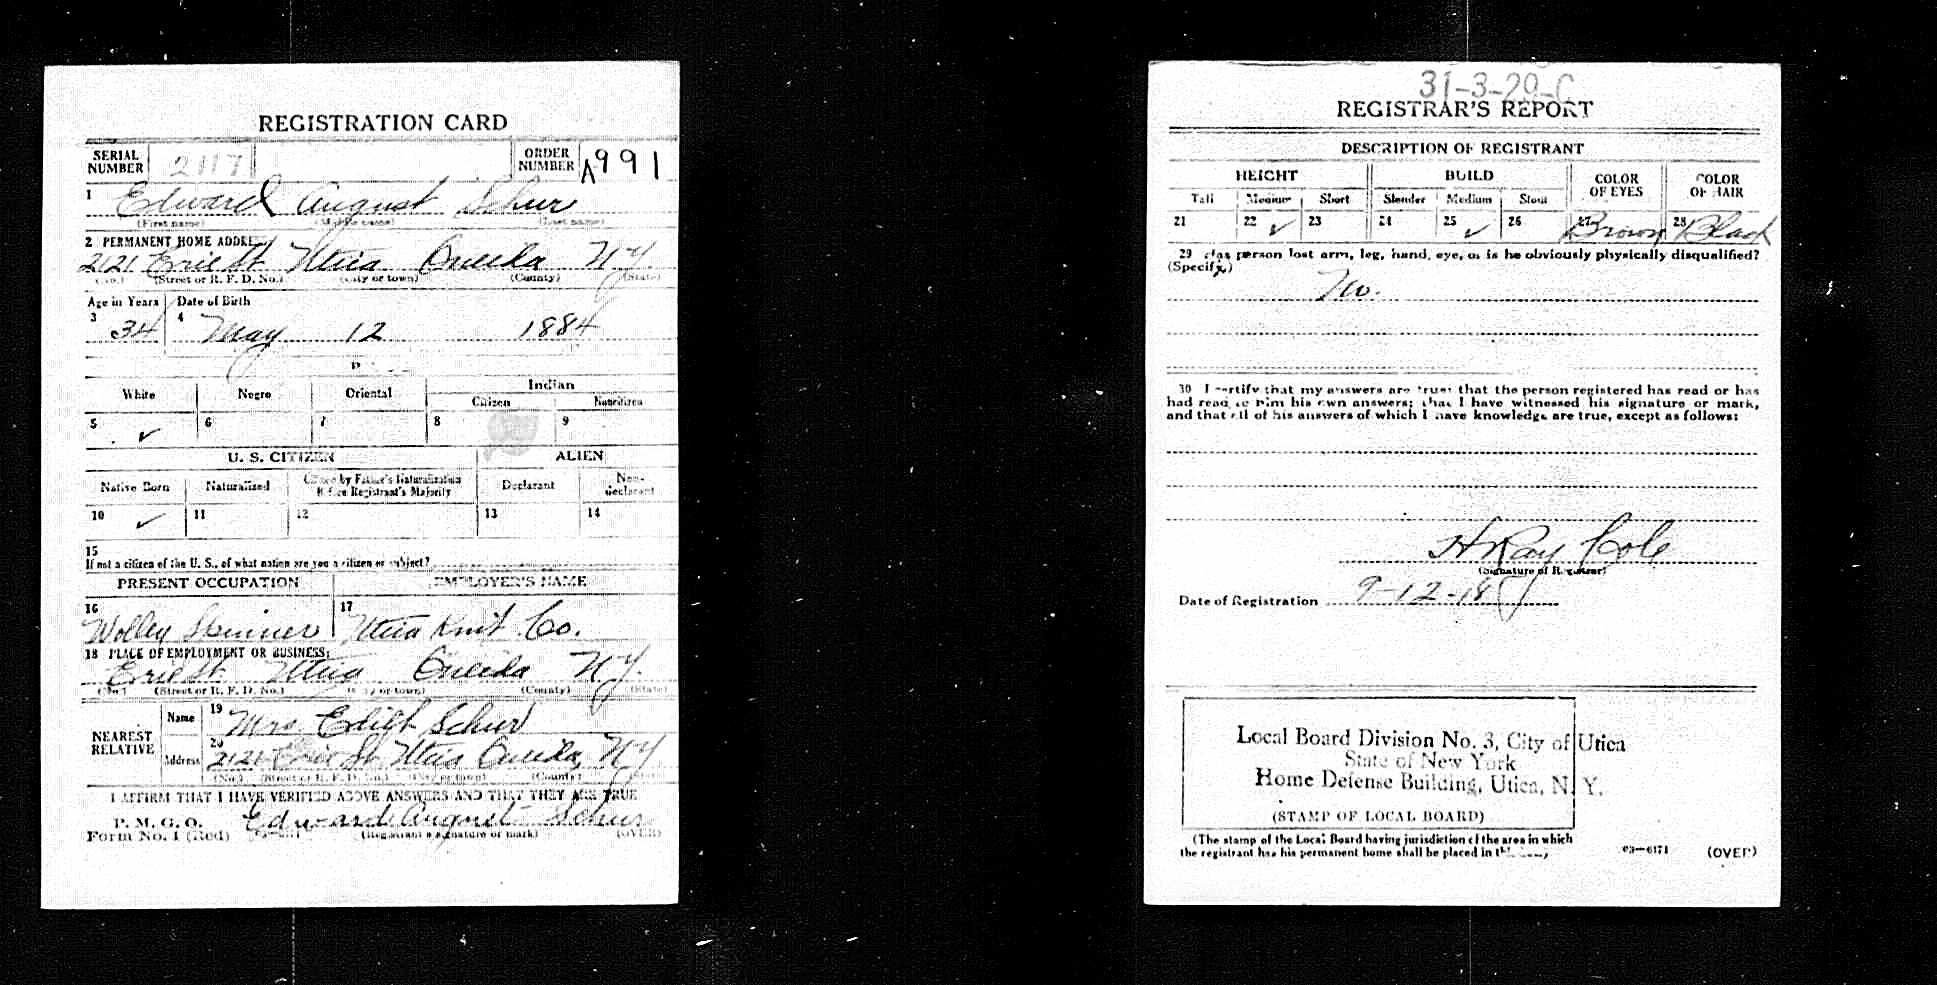 REGISTRATION CARD
SERIAL NUMBER 2117 ORDER NUMBER A991
1 Edward August Schur
(First name) (Middle name) (Last name)
2 PERMANENT HOME ADDRESS
2121 Erie St Utica Oneida N.Y.
(No.) (Street or R. F. D. No.) (City or town) (County) (State)
Age in Years Date of Birth
3 34 4 May 12 1884
White Negro Oriental Indian
Citizen Noncitizen
5 ✓ 6 7 8 9
U. S. CITIZEN ALIEN
Native Born Naturalized Citizen by Father's Naturalization Before Registrant's Majority Declarant Non-declarant
10 ✓ 11 12 13 14
15
If not a citizen of the U. S., of what nation are you a citizen or subject?
PRESENT OCCUPATION EMPLOYER'S NAME
16 17
Spinner Utica Knit Co.
18 PLACE OF EMPLOYMENT OR BUSINESS:
Erie St. Utica Oneida N.Y.
(No.) (Street or R. F. D. No.) (City or town) (County) (State)
NEAREST RELATIVE
Name 19 Mrs. Edith Schur
Address 20 2121 Erie St Utica Oneida, N.Y
(No.) (Street or R. F. D. No.) (City or town) (County) (State)
I AFFIRM THAT I HAVE VERIFIED ABOVE ANSWERS AND THAT THEY ARE TRUE
P. M. G. O.
Form No. 1 (Red) Edward August Schur
(Registrant's signature or mark) (OVER)
31-3-29-C
REGISTRAR'S REPORT
DESCRIPTION OF REGISTRANT
HEIGHT BUILD COLOR OF EYES COLOR OF HAIR
Tall Medium Short Slender Medium Stout
21 22 ✓ 23 24 25 ✓ 26 27 Brown 28 Black
29 Has person lost arm, leg, hand, eye, or is he obviously physically disqualified?
(Specify.)
No.
30 I certify that my answers are true; that the person registered has read or has
had read to him his own answers; that I have witnessed his signature or mark,
and that all of his answers of which I have knowledge are true, except as follows:
H Ray Cole
(Signature of Registrar)
Date of Registration 9-12-18
Local Board Division No. 3, City of Utica
State of New York
Home Defense Building, Utica, N. Y.
(STAMP OF LOCAL BOARD)
(The stamp of the Local Board having jurisdiction of the area in which
the registrant has his permanent home shall be placed in this box.)
03—6171 (OVER)